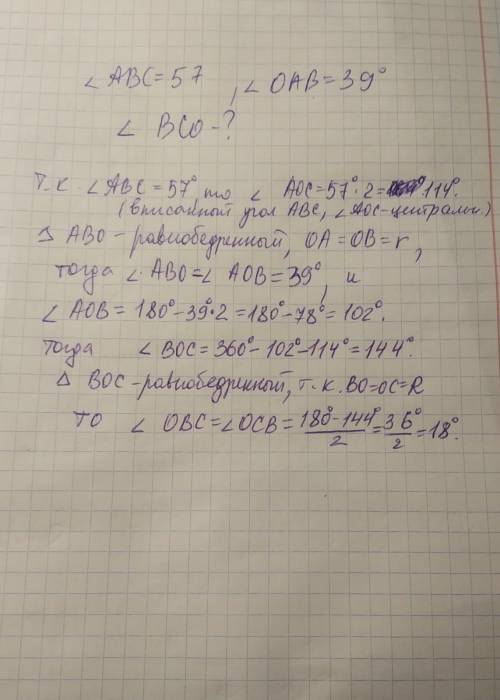 ∠ ABC = 57 , ∠ OAB = 39°
∠ BCO - ?
Т.к. ∠ ABC = 57°, то ∠ AOC = 57°·2 = 114°.
(вписанный угол ABC, ∠ AOC - центральн.)
Δ ABO - равнобедренный, OA = OB = r,
тогда ∠ ABO = ∠ AOB = 39°, и
∠ AOB = 180° - 39°·2 = 180° - 78° = 102°.
Тогда ∠ BOC = 360° - 102° - 114° = 144°.
Δ BOC - равнобедренный, т.к. BO = OC = R
ТО ∠ OBC = ∠ OCB = (180° - 144°)/2 = 36°/2 = 18°.